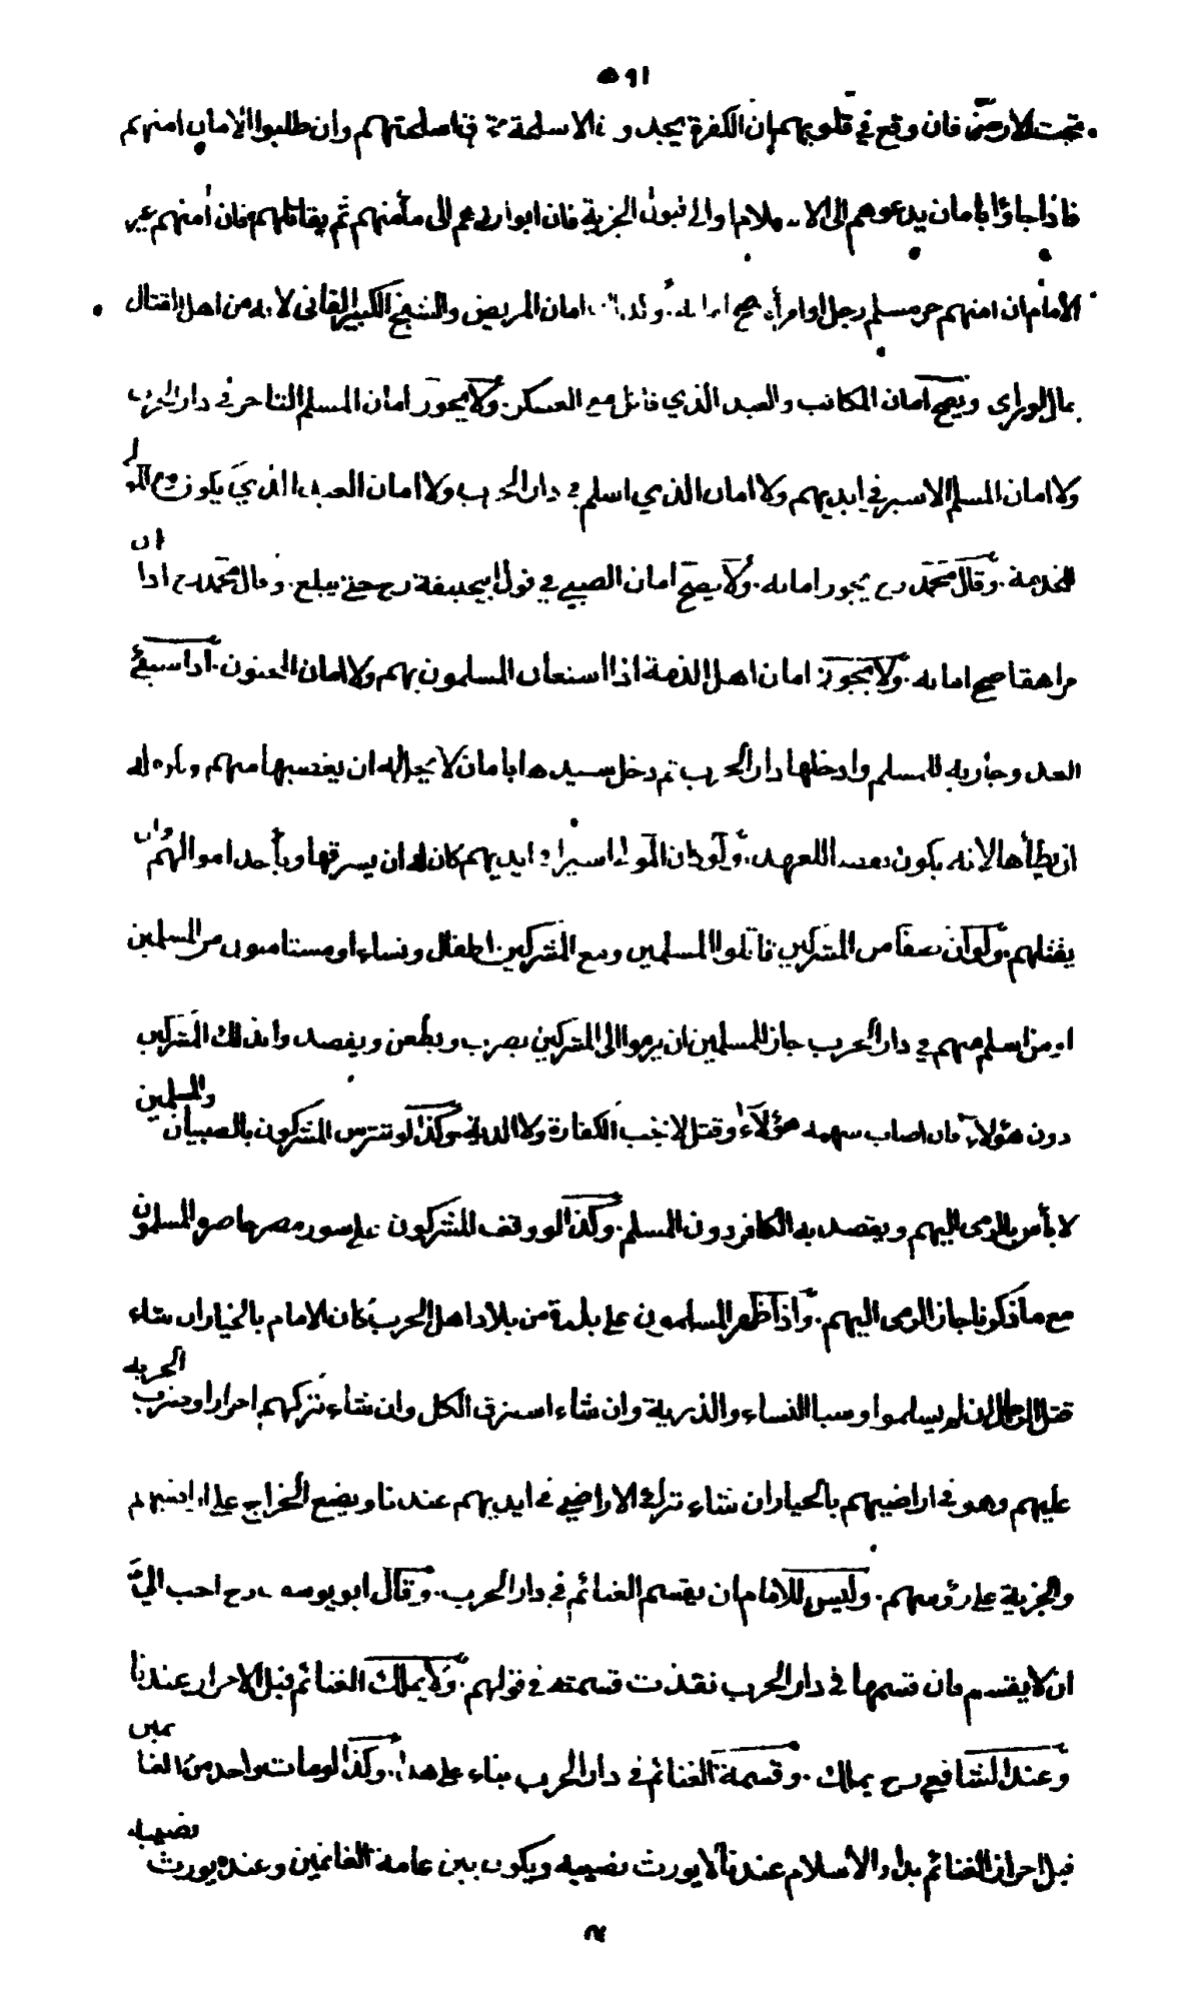 ٥٩١
تحت الارض فان وقع في قلوبهم ان الكفرة يجدون الاسلحة فى اسلحتهم وان طلبوا الامان امنهم
فاذا جاؤا بامان يدعوهم الى الاسلام او الى قبول الجزية فان ابوا ردهم الى مأمنهم ثم يقاتلهم فان امنهم غير
الامام ان امنهم حر مسلم رجل او امرأة صح امانه امان المريض والشيخ الكبير الفانى لانه من اهل القتال
بمال او براى ويصح امان المكاتب والعبد الذي قاتل مع العسكر ولا يجوز امان المسلم التاجر في دار الحرب
ولا امان المسلم الاسير في ايديهم ولا امان الذي اسلم في دار الحرب ولا امان العبد الذي يكون مع المولى
للخدمة وقال محمد رح يجوز امانه ولا يصح امان الصبي في قول ابيحنيفة رح حتى يبلغ وقال محمد رح اذا كان
مراهقا صح امانه ولا يجوز امان اهل الذمة اذا استعان المسلمون بهم ولا امان المجنون اذا سبي
العدو جارية للمسلم وادخلها دار الحرب ثم دخل سيدها بامان لا يحل له ان يغصبها منهم ويكره له
ان يطأها لانه يكون نقض اللعهد ولو كان المولى اسيرا في ايديهم كان له ان يسرقها ويأخذ اموالهم وان
يقتلهم ولو ان صفا من المشركين قاتلوا المسلمين ومع المشركين اطفال ونساء او مستامنون من المسلمين
او من اسلم منهم في دار الحرب جاز للمسلمين ان يرموا الى المشركين بضرب وبطعن ويقصدوا بذلك المشركين
دون هؤلاء فان اصاب سهمه هؤلاء وقتل لا يجب الكفارة ولا الدية وكذا لو تترس المشركون بالصبيان والمسلمين
لا بأس بالرمى اليهم ويقصد به الكافر دون المسلم وكذا لو وقف المشركون على سور مصر حاصر المسلمون
مع ما ذكرنا جاز الرمى اليهم واذا ظهر المسلمون على بلدة من بلاد اهل الحرب كان الامام بالخيار ان شاء
قتل الرجال ان لم يسلموا وسبا النساء والذرية وان شاء استرق الكل وان شاء تركهم احرارا وضرب الجزية
عليهم وهو في اراضيهم بالخيار ان شاء ترك الاراضي في ايديهم عندنا ويضع الخراج على اراضيهم
والجزية على رؤسهم وليس للامام ان يقسم الغنائم في دار الحرب وقال ابو يوسف رح احب الي
ان لا يقسم فان قسمها في دار الحرب نفذت قسمته في قولهم ولا يملك الغنائم قبل الاحراز عندنا
وعند الشافعي رح يملك وقسمة الغنائم في دار الحرب بناء على هذا وكذا لو مات واحد من الغانمين
قبل احراز الغنائم بدار الاسلام عندنا لا يورث نصيبه ويكون بين عامة الغانمين وعنده يورث نصيبه